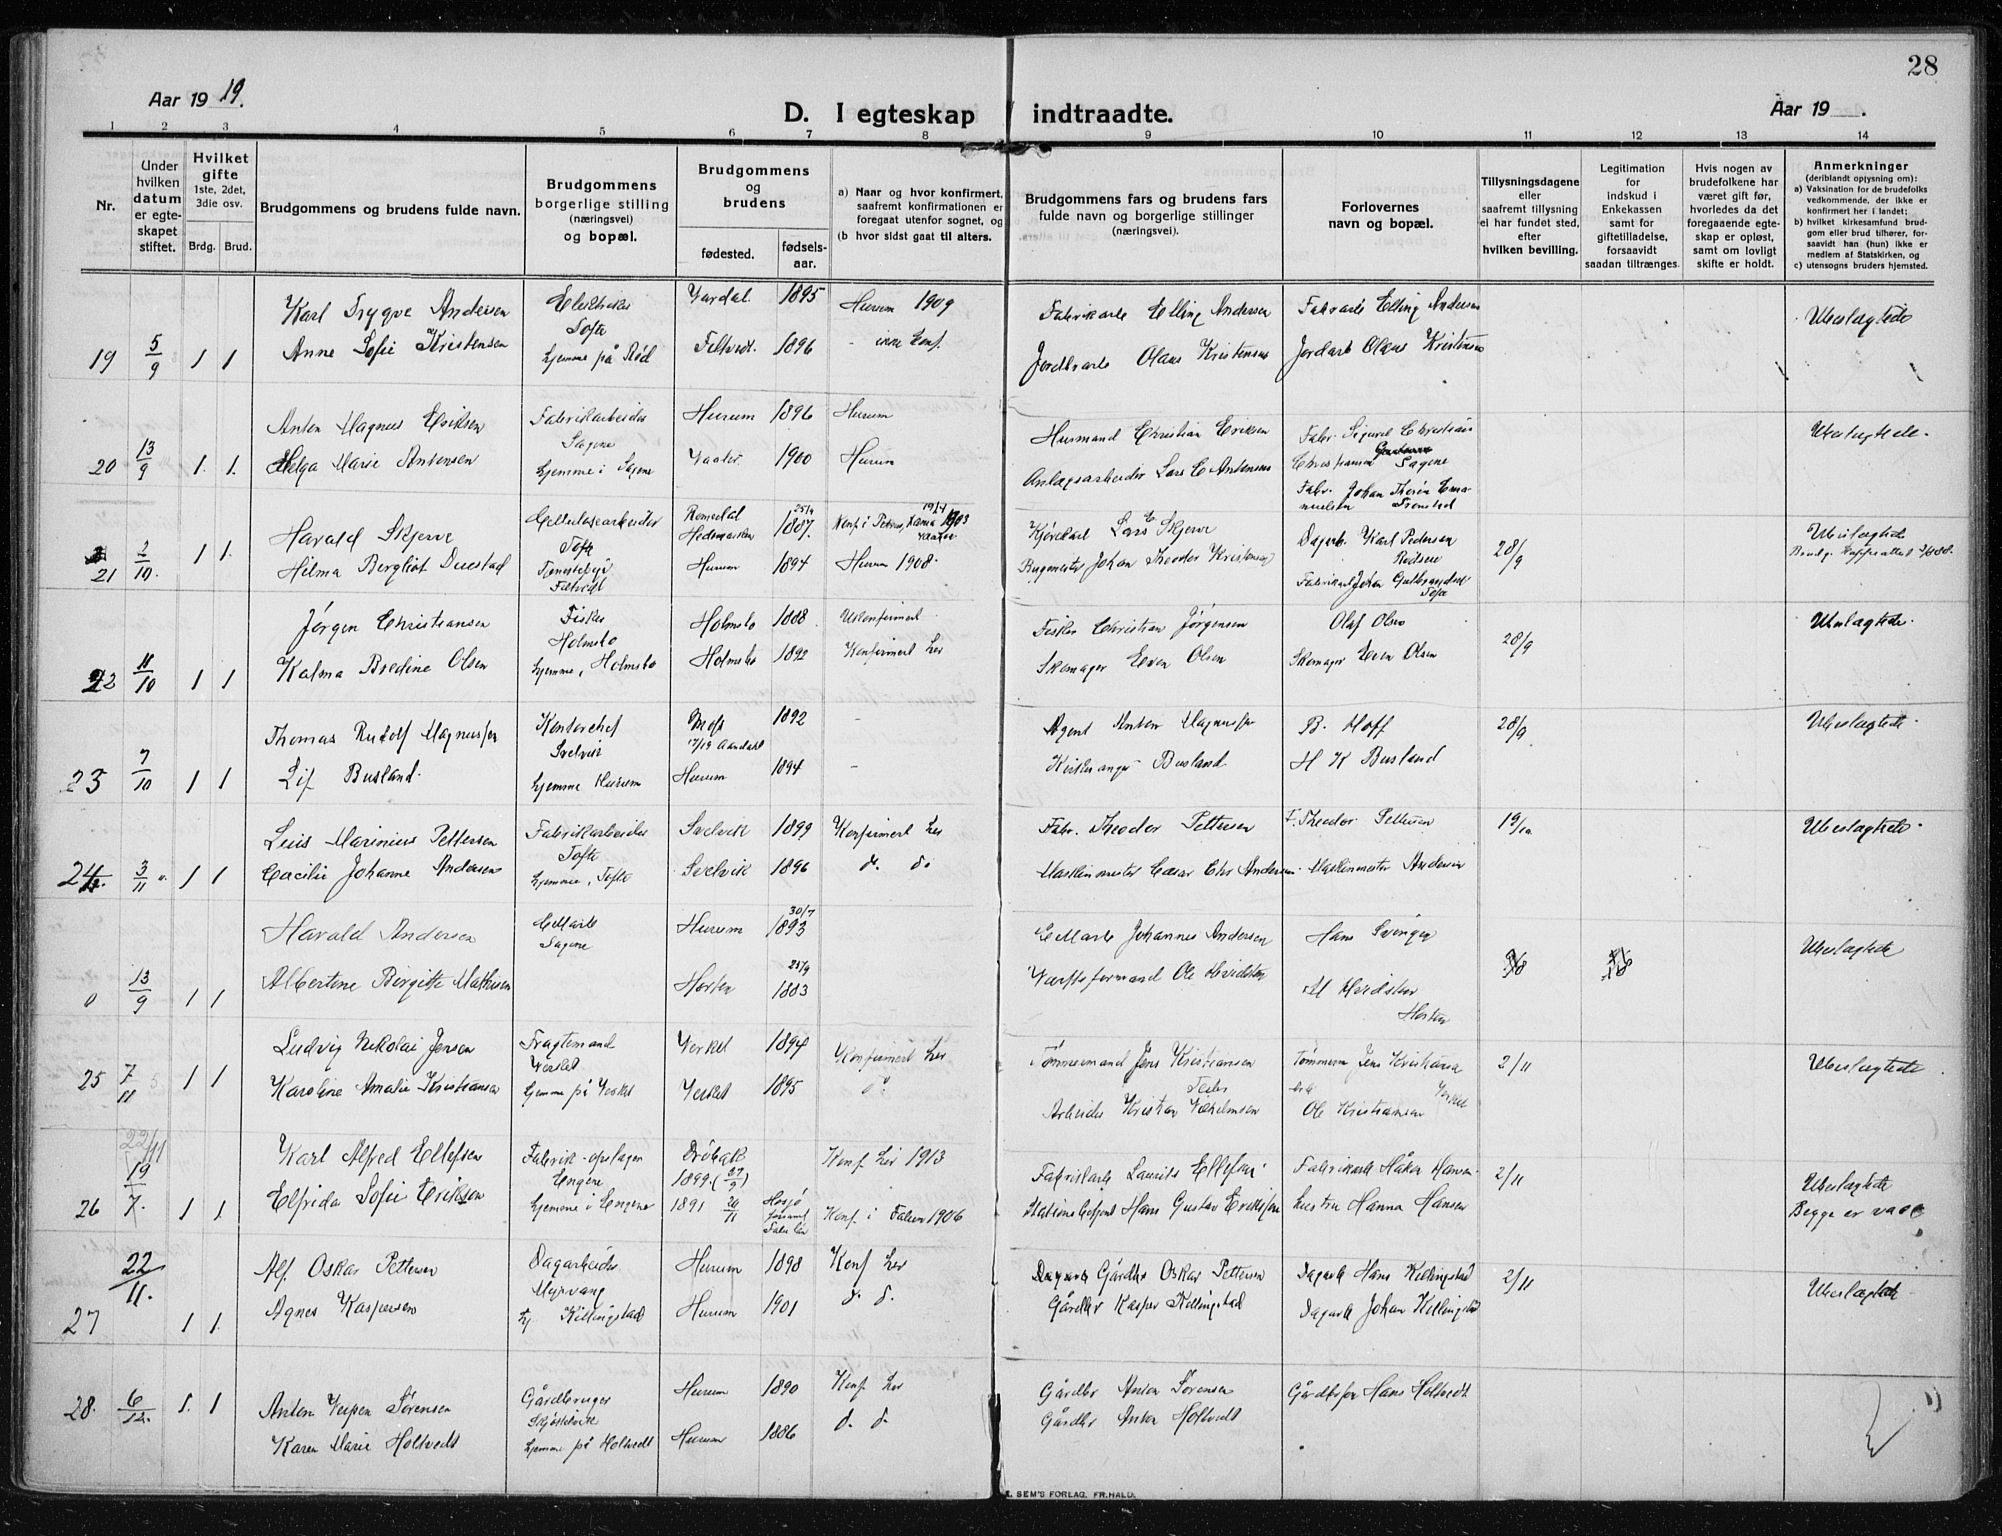 28
Aar 1919.
D. I egteskap indtraadte.
Aar 19 .
1 2 3 4 5 6 7 8 9 10 11 12 13 14
Nr.
Under hvilken datum er egte-skapet stiftet.
Hvilket gifte
1ste, 2det, 3die osv.
Brdg. Brud.
Brudgommens og brudens fulde navn.
Brudgommens borgerlige stilling (næringsvei) og bopæl.
Brudgommens og brudens
fødested.
fødsels-aar.
a) Naar og hvor konfirmert, saafremt konfirmationen er foregaat utenfor sognet, og
(b hvor sidst gaat til alters.
Brudgommens fars og brudens fars fulde navn og borgerlige stillinger (næringsvei).
Forlovernes navn og bopæl.
Tillysningsdagene eller saafremt tillysning ei har fundet sted, efter hvilken bevilling.
Legitimation for indskud i Enkekassen samt for giftetilladelse, forsaavidt saadan tiltrænges.
Hvis nogen av brudefolkene har været gift før, hvorledes da det foregaaende egte-skap er opløst, samt om lovligt skifte er holdt.
Anmerkninger
(deriblandt oplysning om):
a) Vaksination for de brudefolks vedkommende, der ikke er konfirmert her i landet;
b) hvilket kirkesamfund brud-gom eller brud tilhører, for-saavidt han (hun) ikke er medlem af Statskirken, og
c) utensogns bruders hjemsted.
Karl Trygve Andersen Tofte Vardal 1895 Hurum 1909 Fabrikarb Elling Andersen Fabrarb Elling Andersen Ubeslægtede
19 5/9 1 1 Anne Sofie Kristensen hjemme på Rød Filtvedt. 1896 - ikke konf. Jordbrarb Olaus Kristensen Jordarb Olaus Kristensen
Anton Magnus Eriksen Fabrikarbeider Sagene Hurum 1896 Hurum Husmand Christian Eriksen Fabr. Sigurd Christian Christiansen Sagene Ubeslægtede.
20 13/9 1. 1. Helga Marie Antonsen hjemme i Sagene Vaaler 1900 Hurum Anlægsarbeider Lars E Antonsen Fabr. Johan
Harald Skjerve Cellulosearbeider Tofte Romedal Hedemarken 25/4 1887. Kjørekarl Lars E Skjerve Dagarb. Karl Pedersen Rødsene 28/9 Ubeslægtede
21 2/10. 1 1. Hilma Bergliot Duestad Filtvedt Hurum 1894 Hurum 1908. Johan Theodor Kristensen Fabrikarb Johan Gulbrandsen Tofte
Jørgen Christiansen Fisker Holmsbo Holmsbo 1888 Ukonfirmert Fisker Christian Jørgensen Olaf Olsen Ubeslægtede.
22 11/10 1 1 Kalma Bredine Olsen hjemme, Holmsbo Holmsbo 1892 Konfirmert her Skomager Even Olsen Skomager Even Olsen 28/9
Thomas Rudolf Magnussen Kontorchef Svelvik Moss 17/19 1892 - Agent Anton Magnussen B. Hoff 28/9 Ubeslægtede.
23 7/10 1 1 Lif Busland. hjemme Hurum Hurum 1894 - Kirkesanger Busland H K Busland
Marinius Pettersen Fabrikarbeider Tofte Svelvik 1899 Konfirmert her Fabr. Theodor Pettersen F. Theodor Pettersen 19/10 Ubeslægtede.
24 3/11 1 1 Cacilie Johanne Andersen hjemme, Tofte Svelvik 1896 d. do Maskinmester Chr Andersen Maskinmester Andersen
Harald Andersen Sagene Hurum 30/7 1893 Johannes Andersen Hans Ubeslægtede
0 13/9 1 1 Albertine Birgitte Mathisen Horten 25/9 1883 Værftsformand Ole Horten
Ludvig Nikolai Jensen Fragtemand Verket Verket 1894 Konfirmert her Tømmermand Jens Kristiansen Tømmerm Jens Kristiansen 2/11 Ubeslægtede
25 7/11 1 1 Karoline Amalie Kristiansen hjemme på Verket Verket 1895 do Arbeider Kristian Ole Kristiansen Verket
22/11 Karl Alfred Ellefsen Engene Drøbak 1899 Konf. her 1913 Fabrikarb Laurits Ellefsen Fabrikarb Håkon Hansen 2/11 Ubeslægtede
26 19/7. 1 1 Elfrida Sofie Eriksen hjemme i Engene 1891 20/11 Konf. i Falun 1906 Hans Gustav Eriksson Hanna Hansen Begge er vacc
22/11. Alf Oskar Pettersen Dagarbeider Myrvang Hurum 1898 Konf her Gårdbr Oskar Pettersen Dagarb Hans Killingstad 2/11 Ubeslægtede
27 1 1. Agnes Kaspersen hj. Killingstad Hurum 1901 d. d. Gårdbr Kasper Killingstad Dagarb Johan Killingstad
28. 6/12. 1. 1 Anton Sørensen Gårdbruger Hurum 1890 Konf her Gårdbr Anton Sørensen Gårdbr Hans Holtvedt
Karen Marie Holtvedt hjemme på Holtvedt Hurum 1886 d. d. Gårdbr Anton Holtvedt
E. SEM'S FORLAG. FR.HALD.